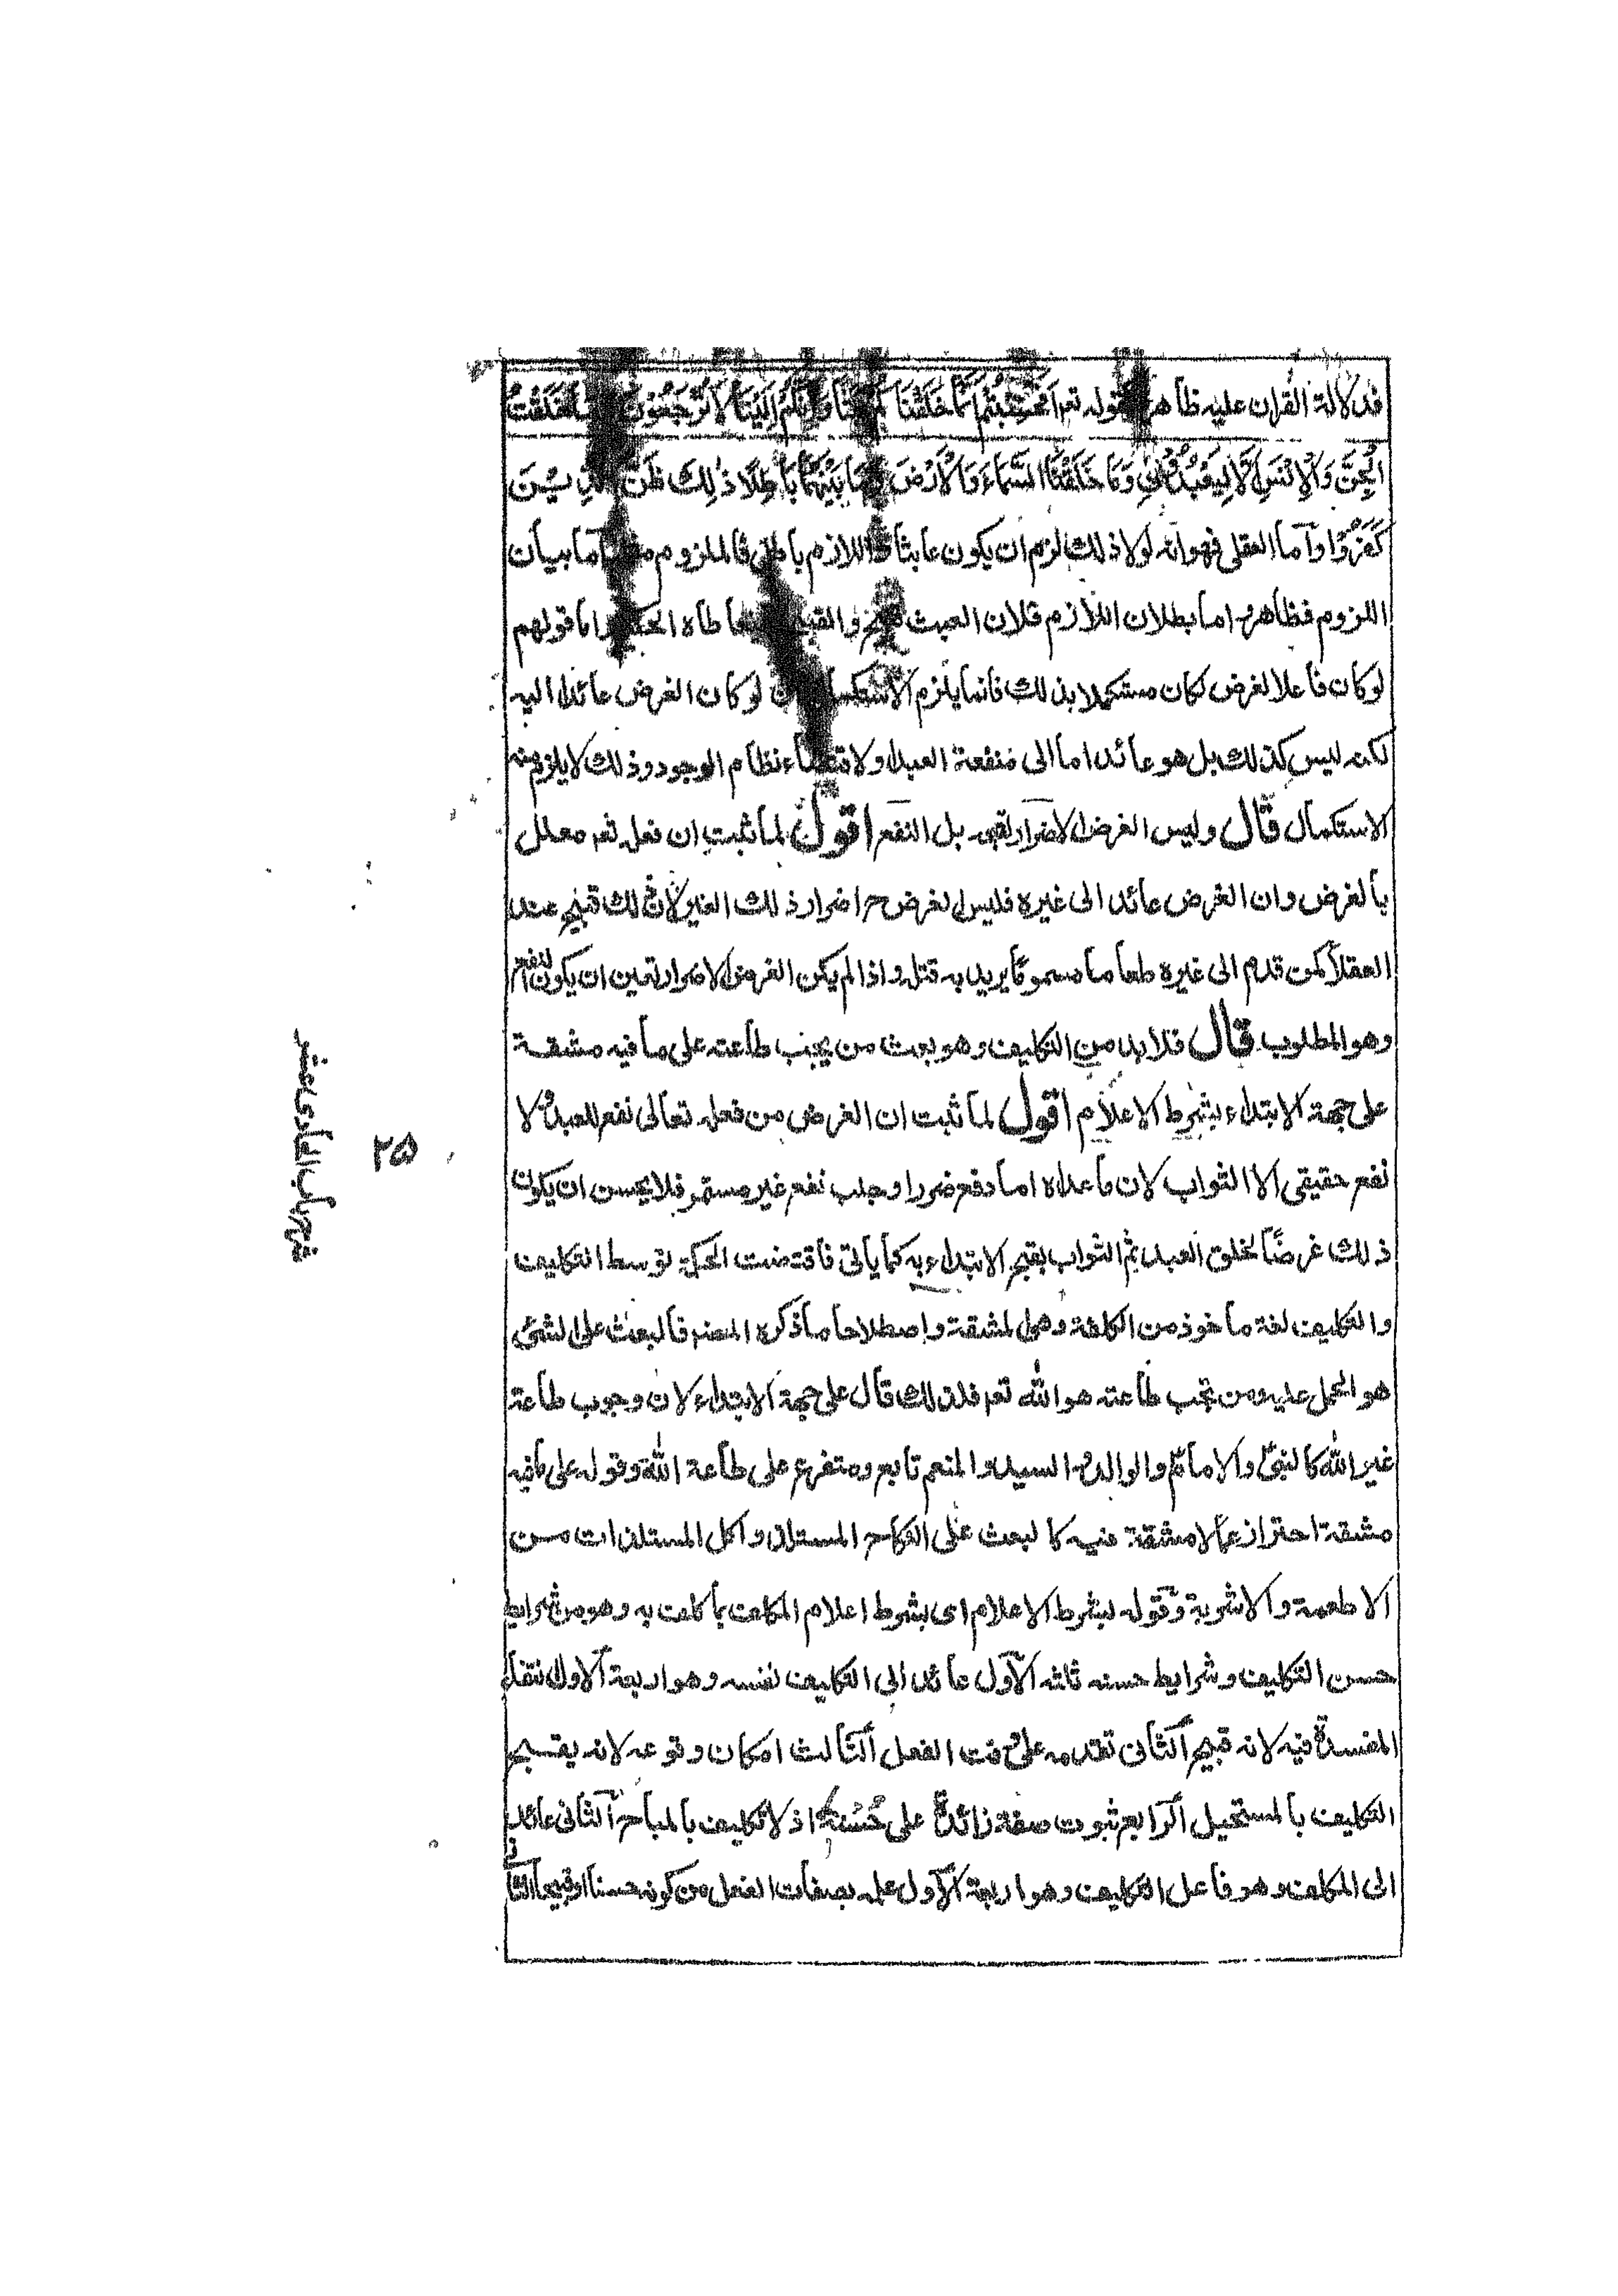 فدلالة القران عليه ظاهرة كقوله تعم اَفَحَسِبْتُمْ اَنَّمَا خَلَقْنَاكُمْ عَبَثًا وَاَنَّكُمْ اِلَيْنَا لَا تُرْجَعُوْنَ وَمَا خَلَقْتُ
الْجِنَّ وَالْاِنْسَ اِلَّا لِيَعْبُدُوْنِ وَمَا خَلَقْنَا السَّمَاءَ وَالْاَرْضَ وَمَا بَيْنَهُمَا بَاطِلًا ذٰلِكَ ظَنُّ الَّذِيْنَ
كَفَرُوْا واَما العقلى فهو انه لولا ذلك لزم ان يكون عابثا واللازم باطل فالملزوم مثله اما بيان
اللزوم فظاهر واما بطلان اللازم فلان العبث قبيح والقبيح لا يتعاطاه الحكيم واما قولهم
لو كان فاعلا لغرض لكان مستكملا بذلك فانما يلزم الاستكمال ان لو كان الغرض عائدا اليه
لكنه ليس كذلك بل هو عائد اما الى منفعة العبد او لاقتضاء نظام الوجود وذلك لا يلزم منه
الاستكمال قال وليس الغرض الاضرار لقبحه بل النفع اقول لما ثبت ان فعله تعم معلل
بالغرض وان الغرض عائد الى غيره فليس الغرض ح اضرار ذلك الغير لان ذلك قبيح عند
العقلاء كمن قدم الى غيره طعاما مسموما يريد به قتله واذا لم يكن الغرض الاضرار تعين ان يكون النفع
وهو المطلوب قال فلا بد من التكليف وهو بعث من يجب طاعته على ما فيه مشقة
على جهة الابتداء بشرط الاعلام اقول لما ثبت ان الغرض من فعله تعالى نفع العبد ولا
نفع حقيقى الا الثواب لان ما عداه اما دفع ضرر او جلب نفع غير مستمر فلا يحسن ان يكون
ذلك غرضًا لخلق العبد ثم الثواب يقبح الابتداء به كما ياتى فاقتضت الحكمة توسط التكليف
والتكليف لغة ماخوذ من الكلفة وهى المشقة واصطلاحا ما ذكره المصنف فالبعث على الشئ
هو الحمل عليه ومن تجب طاعته هو الله تعم فلذلك قال على جهة الابتداء لان وجوب طاعة
غير الله كالنبىؐ والامامؑ والوالد والسيد والمنعم تابع ومتفرع على طاعة الله وقوله على ما فيه
مشقة احتراز عما لا مشقة فيه كالبعث على النكاح المستلذ واكل المستلذات من
الاطعمة والاشربة وقوله بشرط الاعلام اى بشرط اعلام المكلف بما كلف به وهو من شرايط
حسن التكليف وشرايط حسنه ثلثه الاَول عائد الى التكليف نفسه وهو اربعة الاَول انتفاء
المفسدة فيه لانه قبيح الثانى تقدمه على وقت الفعل الثالث امكان وقوعه لانه يقبح
التكليف بالمستحيل الرابع ثبوت صفة زائدة على حُسْنه اذ لا تكليف بالمباح الثانى عائد
الى المكلف وهو فاعل التكليف وهو اربعة الاَول علمه بصفات الفعل من كونه حسنا او قبيحا الثانى
۲۵
شرح باب الحادى عشر